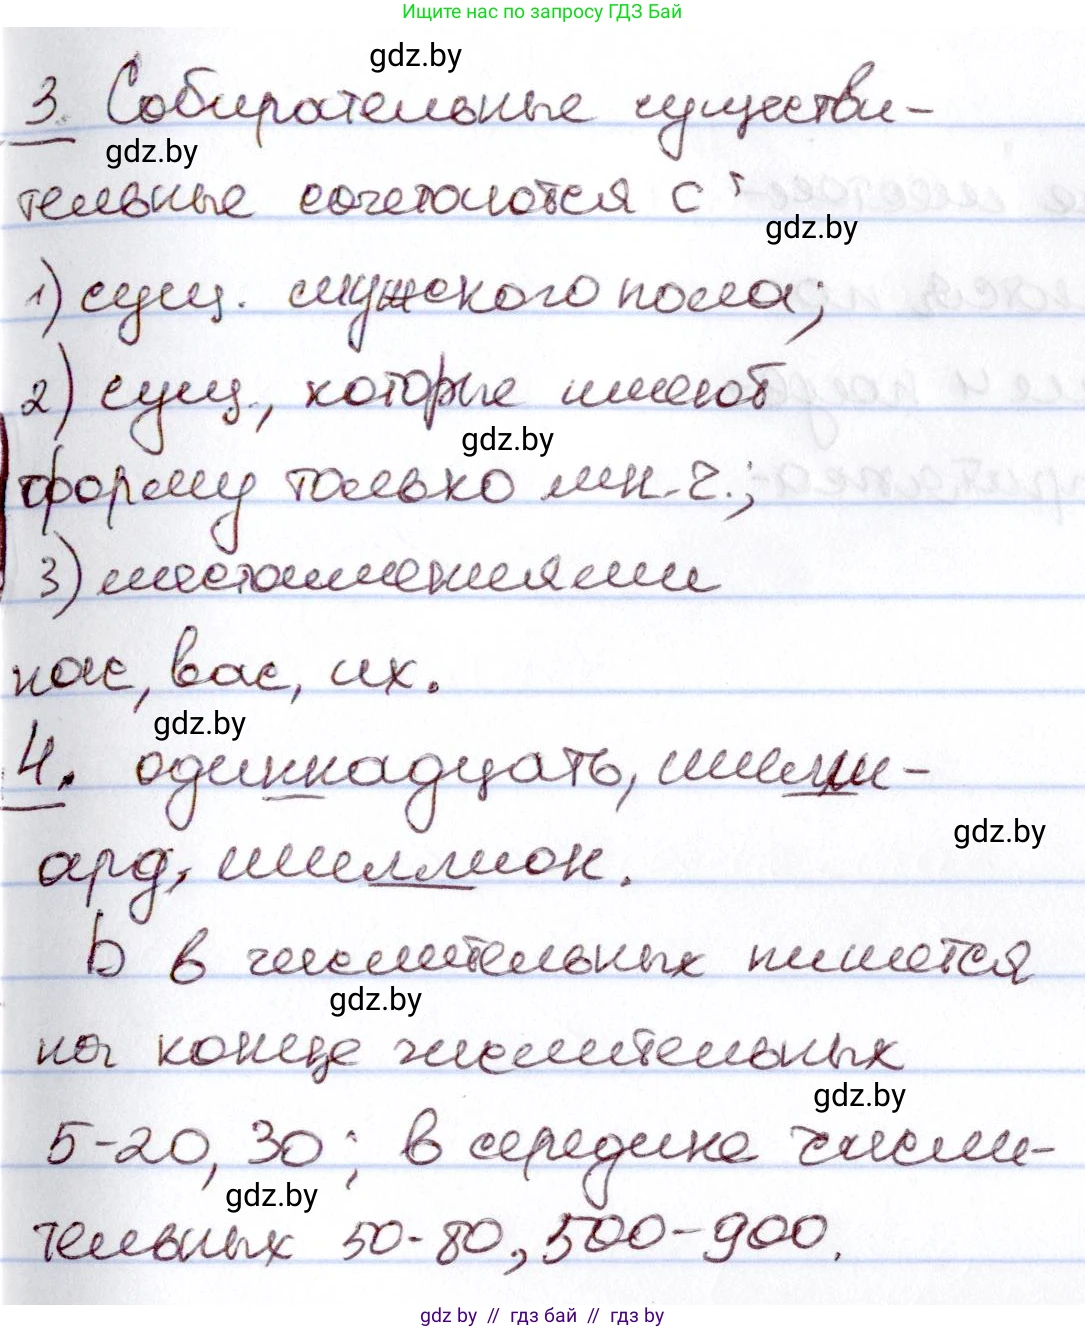 Ищите нас по запросу ГДЗ Бай
gdz.by
3. Собирательные существи-
gdz.by
тельные сочетаются с
gdz.by
1) сущ. мужского пола;
2) сущ., которые имеют
gdz.by
форму только мн.ч.;
3) местоимениями
нас, вас, их.
gdz.by
4. одиннадцать, милли-
gdz.by
ард, миллион.
Ь в числительных пишется
gdz.by
на конце числительных
gdz.by
5-20, 30; в середине числи-
gdz.by
тельных 50-80, 500-900.
gdz by // гдз бай // гдз by